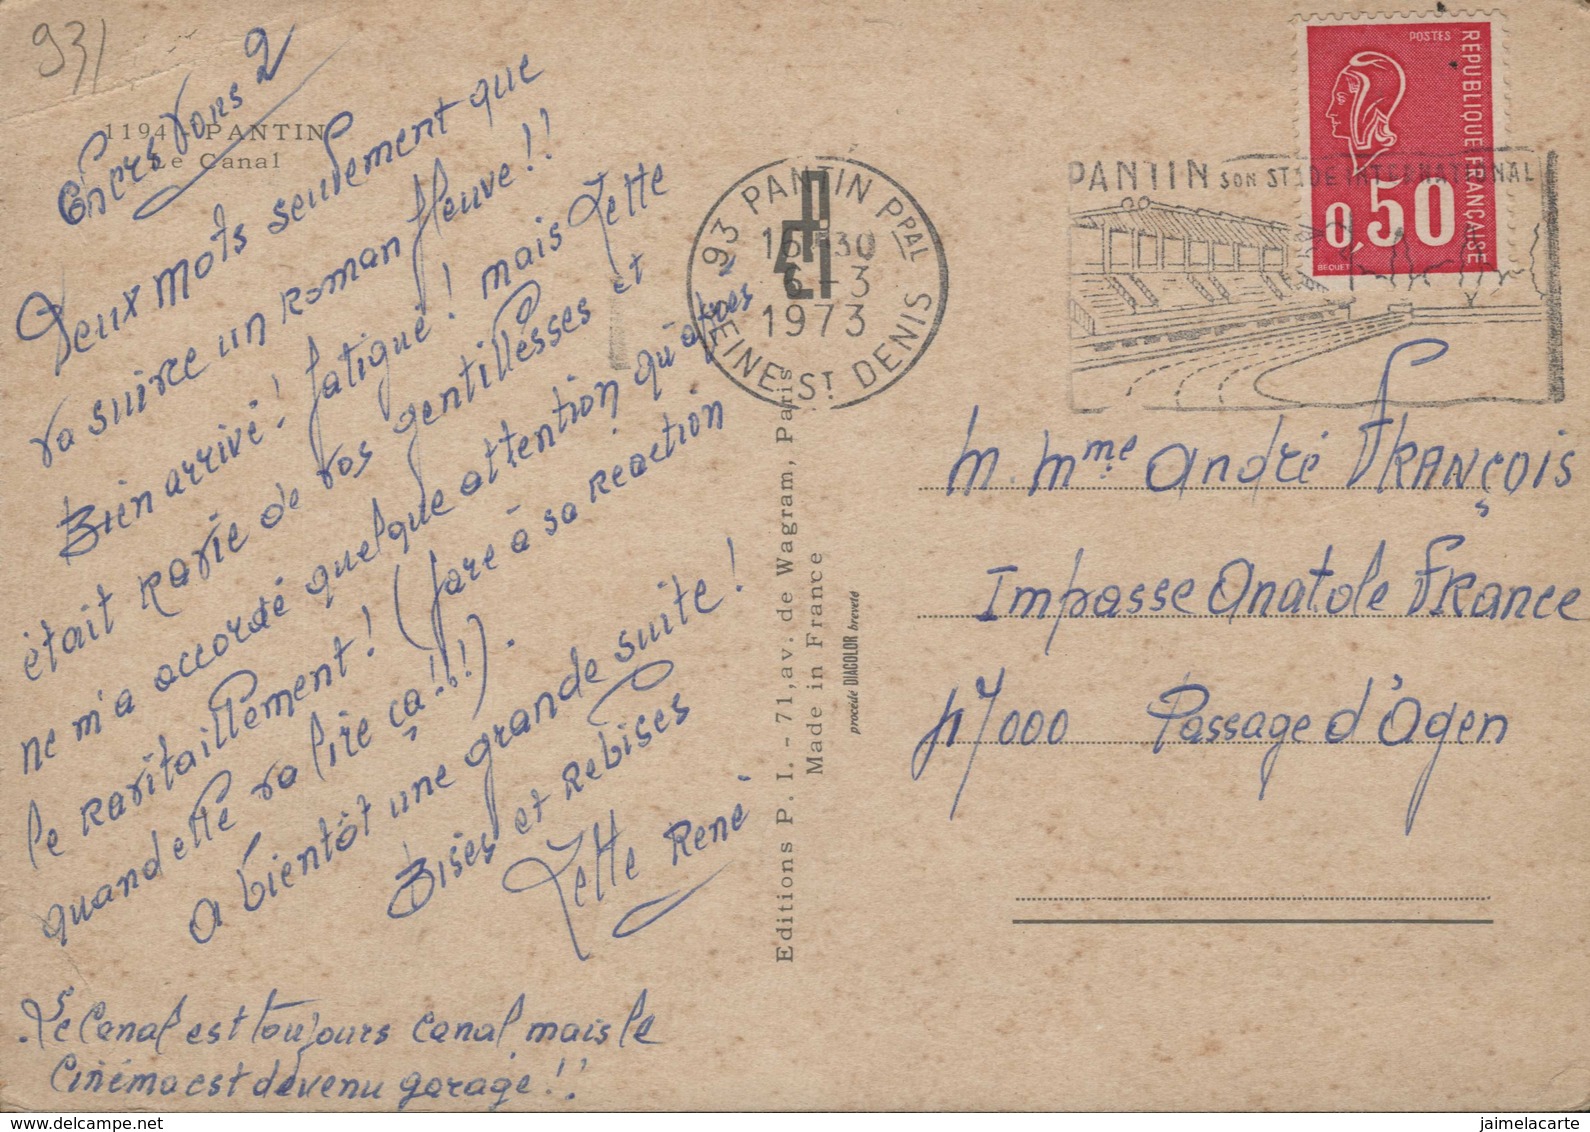 93/
1194 - PANTIN
Le Canal
Chers vous 2
Deux mots seulement que
va suivre un roman fleuve!!
Bien arrivé! fatigué! mais Zette
était ravie de vos gentillesses et
ne m'a accordé quelque attention qu'après
le ravitaillement! (face à sa réaction
quand elle va lire ça!!!).
A bientôt une grande suite!
Bises et Rebises
Zette René
Le Canal est toujours canal, mais le
Cinéma est devenu garage!!
Editions P. I. - 71, av. de Wagram, Paris
Made in France
procédé DIAGOLOR breveté
93 PANTIN PPAL
16 H 30
6 - 3
1973
SEINE ST DENIS
PANTIN SON STADE INTERNATIONAL
POSTES
REPUBLIQUE FRANÇAISE
0,50
BEQUET
M. Mme André FRANÇOIS
Impasse Anatole France
47000 Passage d'Agen
jaimelacarte